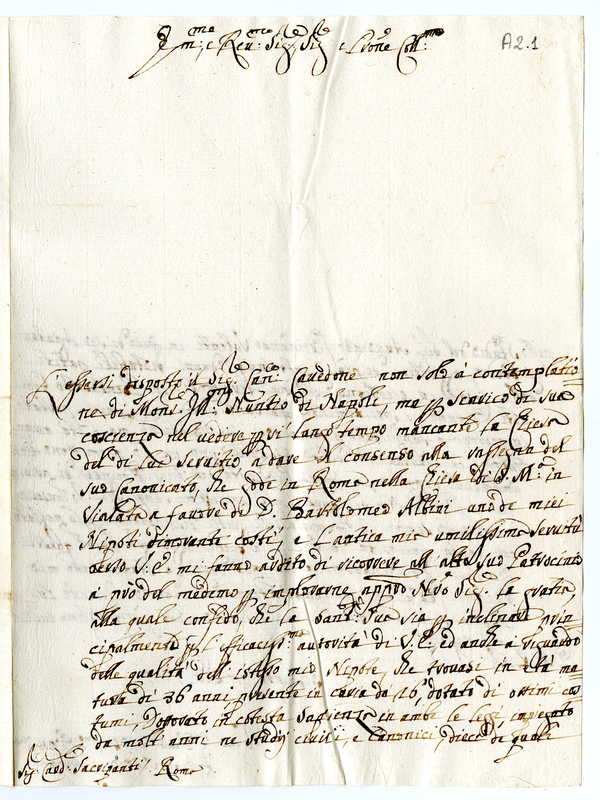 Em:mo e Rev:mo Sig:re Sig:re e Prone Coll:mo
A2.1
L'essersi disposto il Sig:re Can:co Cavedone non solo à contemplatio=
ne di Mons:re Ill:mo Nuntio di Napoli, ma p scarico di sua
coscienza nel vedere p sì longo tempo mancante la Chiesa
del di lui servitio à dare il consenso alla rassegna del
suo Canonicato, che gode in Roma nella Chiesa di S. M:a in
Vialata a favore di D. Bartolomeo Albini uno de miei
Nipoti dimorante costì, e l'antica mia umilissima servitù
verso V. E. mi fanno ardito di ricorrere all'alto suo Patrocinio
a prò del medemo p implorarne appo N'ro Sig:re la gratia,
alla quale confido, che la Sant:tà Sua sia p inclinare prin
cipalmente p l'efficaciss:ma autorità di V. E. ed anche à riguardo
delle qualità dell'istesso mio Nipote, che trovasi in età ma=
tura di 36 anni presente in curia da 16, dotato di ottimi cos
tumi, Dottorato in cotesta Sapienza in ambe le leggi impiegato
da molt'anni ne studij civili, e canonici, dieci de quali
Sig:re Card:le Sacripanti / Roma